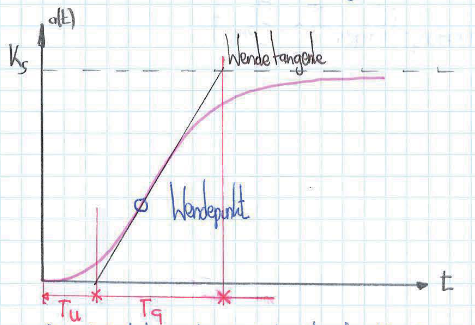 a(t)
Ks
Wendetangente
Wendepunkt
t
Tu
Tg